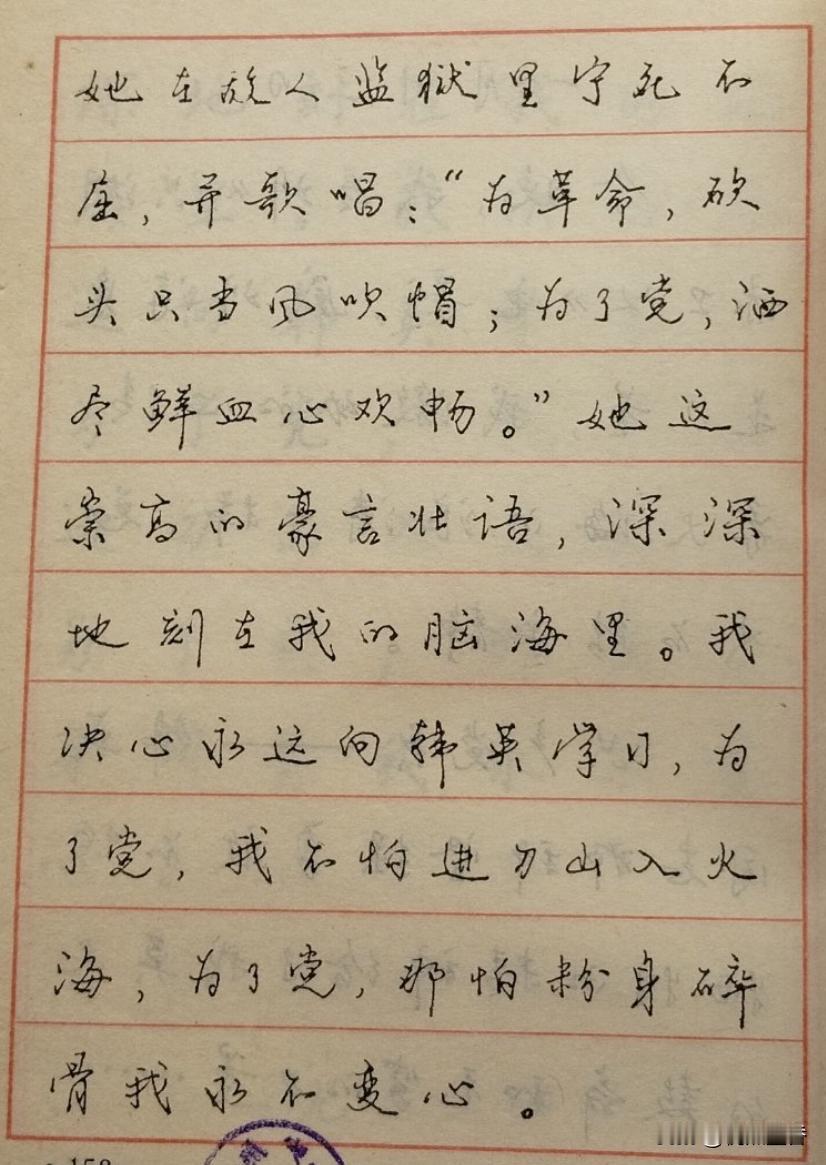 她在敌人监狱里宁死不
屈，并歌唱：“为革命，砍
头只当风吹帽；为了党，洒
尽鲜血心欢畅。”她这
崇高的豪言壮语，深深
地刻在我的脑海里。我
决心永远向韩英学习，为
了党，我不怕进刀山入火
海，为了党，那怕粉身碎
骨我永不变心。